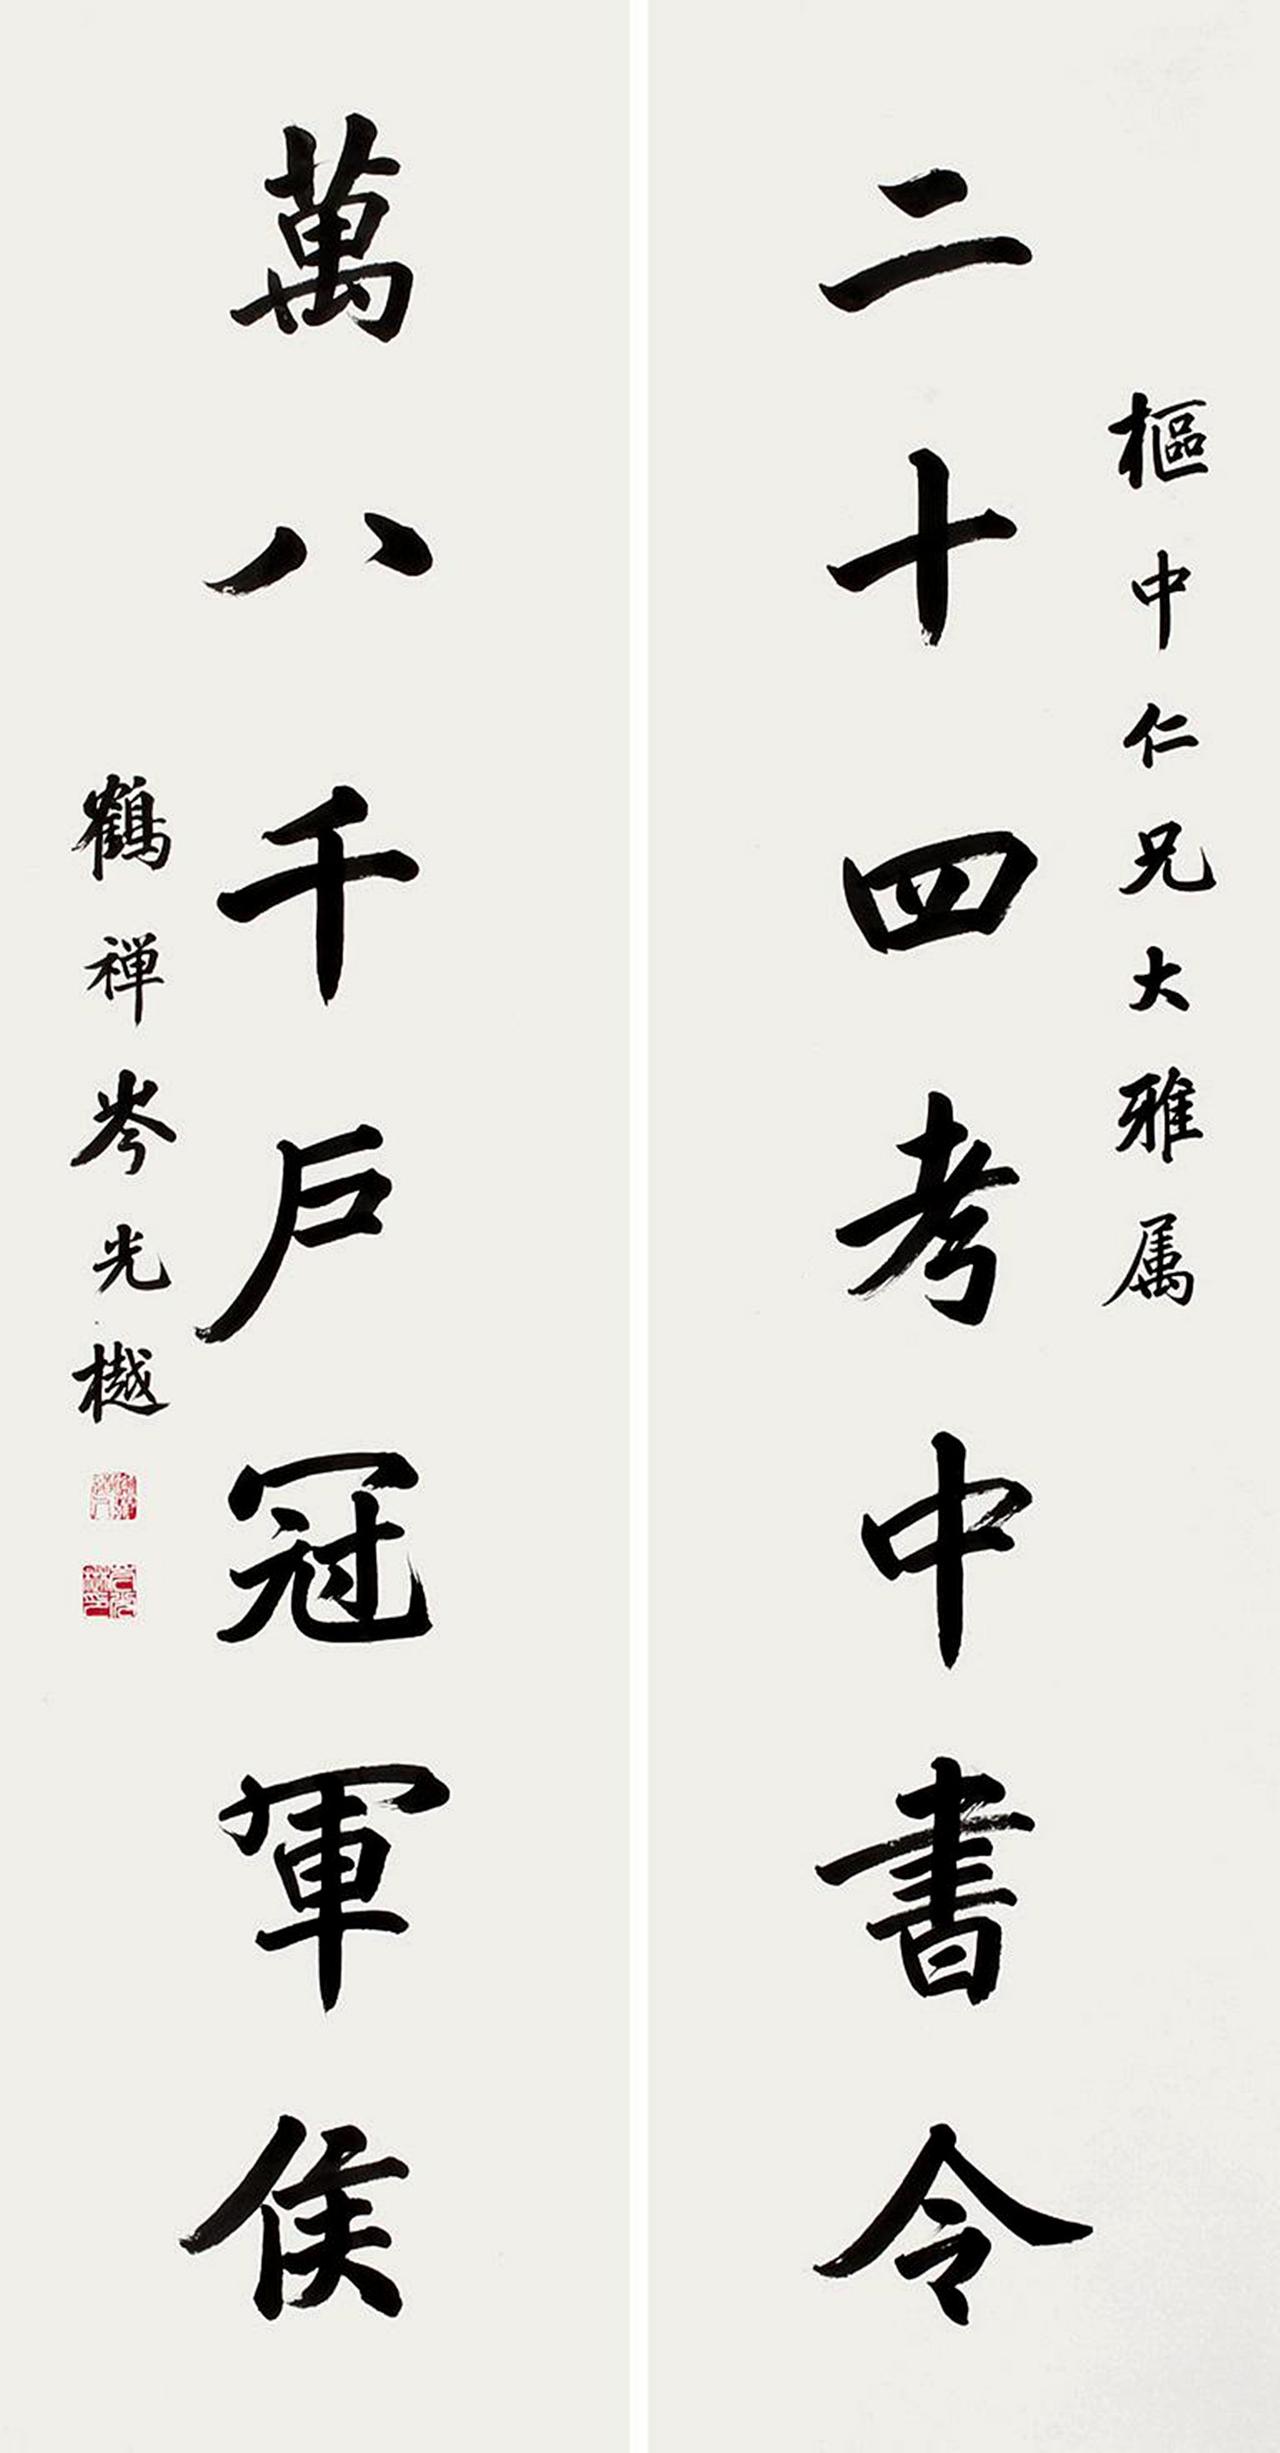 樞中仁兄大雅属
二十四考中書令
萬八千戶冠軍侯
鶴禅岑光樾